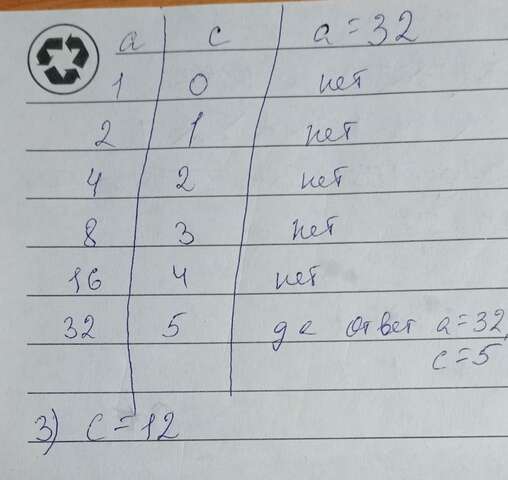 a c a=32
1 0 нет
2 1 нет
4 2 нет
8 3 нет
16 4 нет
32 5 да ответ a=32
c=5
3) c=12